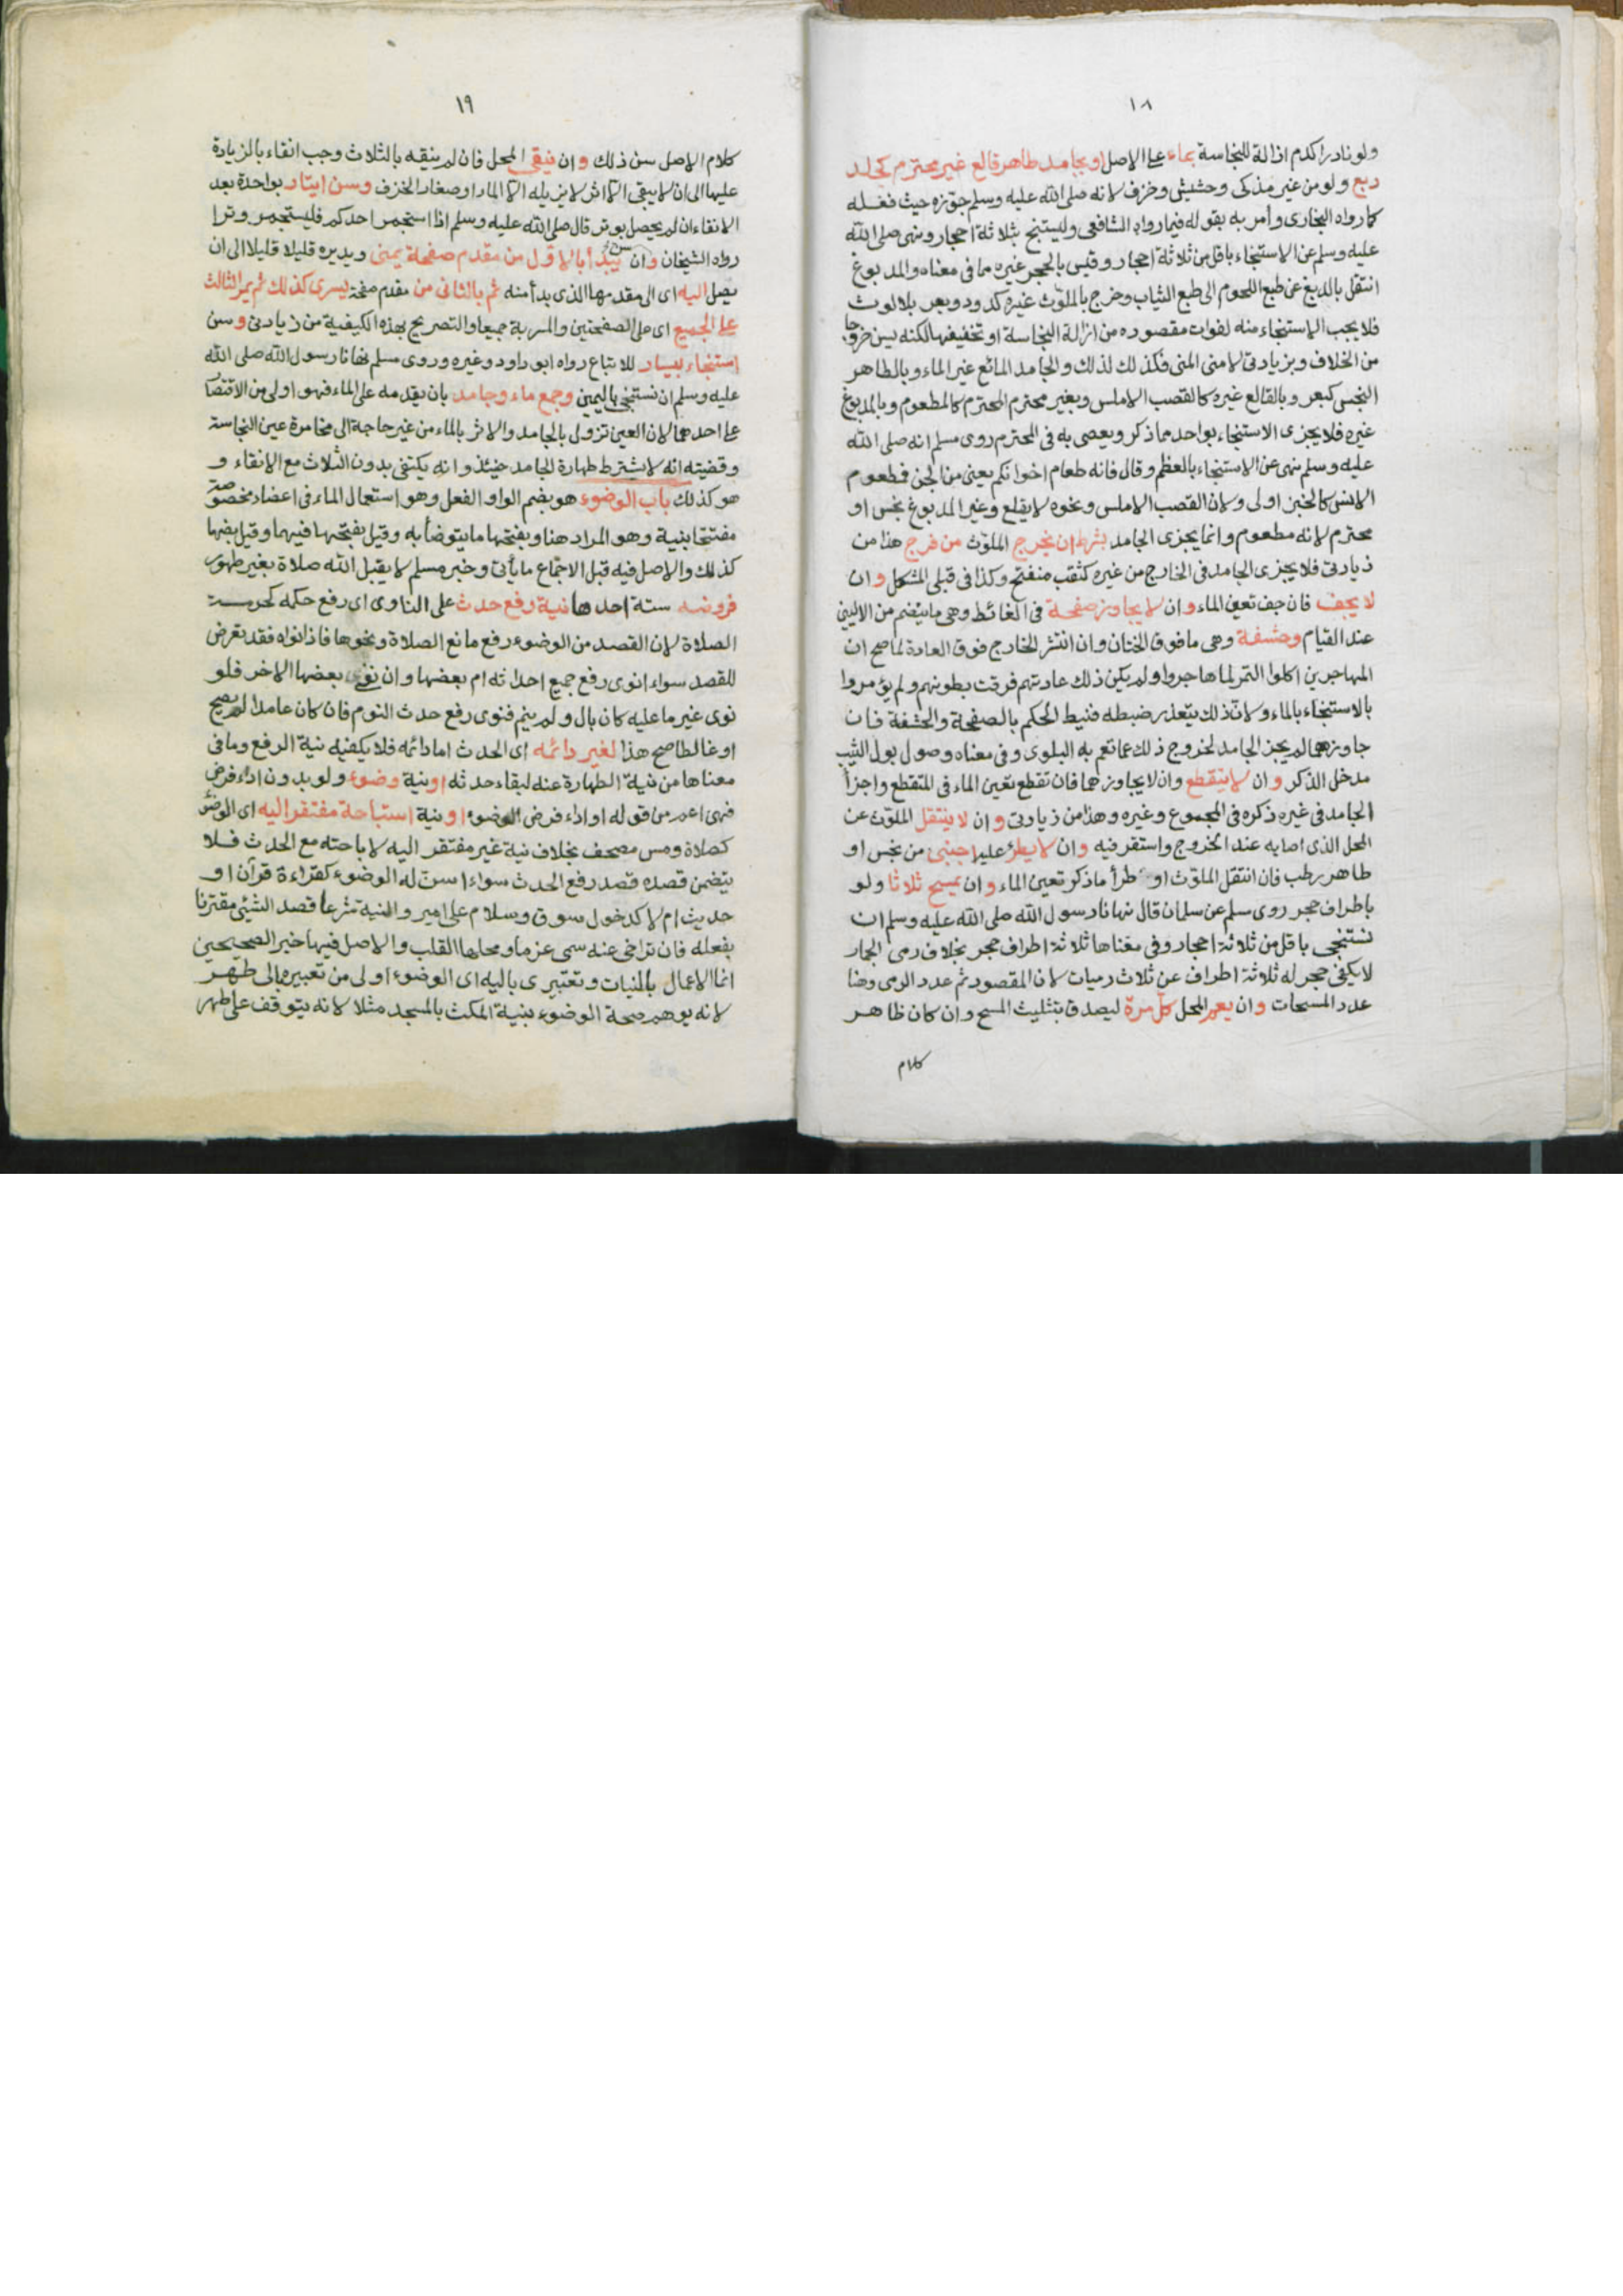 ١٨
ولو نادرا كدم ازالة للنجاسة بماء على الاصل او بجامد طاهر قالع غير محترم كجلد
دبغ ولو من غير مذكى وحشيش وخزف لانه صلى الله عليه وسلم جوزه حيث فعله
كما رواه البخارى وأمر به بقوله فيما رواه الشافعى وليستنج بثلاثة احجار ونهى صلى الله
عليه وسلم عن الاستنجاء باقل من ثلاثة احجار وقيس بالحجر غيره مما فى معناه والمدبوغ
انتقل بالدبغ عن طبع اللحوم الى طبع الثياب وخرج بالملوث غيره كدود وبعر بلا لوث
فلا يجب الاستنجاء منه لفوات مقصوده من ازالة النجاسة او تخفيفها لكنه يسن خروجا
من الخلاف وبزيادتى لا منى المنى فكذلك لذلك والجامد المائع غير الماء وبالطاهر
النجس كبعر وبالقالع غيره كالقصب الاملس وبغير محترم المحترم كالمطعوم وبالمدبوغ
غيره فلا يجزى الاستنجاء بواحد مما ذكر ويعصى به فى المحترم روى مسلم انه صلى الله
عليه وسلم نهى عن الاستنجاء بالعظم وقال فانه طعام اخوانكم يعنى من الجن فمطعوم
الانس كالخبز اولى ولان القصب الاملس ونحوه لا يقلع وغير المدبوغ نجس او
محترم لانه مطعوم وانما يجزى الجامد بشرط ان يخرج الملوث من فرج هذا من
زيادتى فلا يجزى الجامد فى الخارج من غيره كثقب منفتح وكذا فى قبلى المشكل وان
لا يجف فان جف تعين الماء وان لا يجاوز صفحة فى الغائط وهى ما ينضم من الاليين
عند القيام وحشفة وهى ما فوق الختان وان انتشر الخارج فوق العادة لما صح ان
المهاجرين اكلوا التمر لما هاجروا ولم يكن ذلك عادتهم فرقت بطونهم ولم يؤمروا
بالاستنجاء بالماء ولان ذلك يتعذر ضبطه فنيط الحكم بالصفحة والحشفة فان
جاوزهما لم يجز الجامد لخروج ذلك عما تعم به البلوى وفى معناه وصول بول الثيب
مدخل الذكر وان لا يتقطع وان لا يجاوزهما فان تقطع تعين الماء فى المتقطع واجزأ
الجامد فى غيره ذكره فى المجموع وغيره وهذا من زيادتى وان لا ينتقل الملوث عن
المحل الذى اصابه عند الخروج واستقر فيه وان لا يطرؤ عليه اجنبى من نجس او
طاهر رطب فان انتقل الملوث او طرأ ما ذكر تعين الماء وان يمسح ثلاثا ولو
باطراف حجر روى مسلم عن سلمان قال نهانا رسول الله صلى الله عليه وسلم ان
نستنجى باقل من ثلاثة احجار وفى معناها ثلاثة اطراف حجر بخلاف رمى الجمار
لا يكفى حجر له ثلاثة اطراف عن ثلاث رميات لان المقصود ثم عدد الرمى وهنا
عدد المسحات وان يعم المحل كل مرة ليصدق بتثليث المسح وان كان ظاهر
كلام
١٩
كلام الاصل سن ذلك وان ينقى المحل فان لم ينقه بالثلاث وجب انقاء بالزيادة
عليها الى ان لا يبقى الا اثر لا يزيله الا الماء او صغار الخزف وسن ايتار بواحدة بعد
الانقاء ان لم يحصل بوتر قال صلى الله عليه وسلم اذا استجمر احدكم فليستجمر وترا
رواه الشيخان وان يبدأ بالاول من مقدم صفحة يمنى ويديره قليلا قليلا الى ان
يصل اليه اى الى مقدمها الذى بدأ منه ثم بالثانى من مقدم صفحة يسرى كذلك ثم يمر الثالث
على الجميع اى على الصفحتين والمسربة جميعا والتصريح بهذه الكيفية من زيادتى وسن
استنجاء بيسار للاتباع رواه ابو داود وغيره وروى مسلم نهانا رسول الله صلى الله
عليه وسلم ان نستنجى باليمين وجمع ماء وجامد بان يقدمه على الماء فهو اولى من الاقتصار
على احدهما لان العين تزول بالجامد والاثر بالماء من غير حاجة الى مخامرة عين النجاسة
وقضيته انه لا يشترط طهارة الجامد حينئذ وانه يكتفى بدون الثلاث مع الانقاء و
هو كذلك باب الوضوء هو بضم الواو الفعل وهو استعمال الماء فى اعضاء مخصوصة
مفتتحا بنية وهو المراد هنا وبفتحها ما يتوضأ به وقيل بفتحها فيهما وقيل بضمها
كذلك والاصل فيه قبل الاجماع ما يأتى وخبر مسلم لا يقبل الله صلاة بغير طهور
فروضه ستة احدها نية رفع حدث على الناوى اى رفع حكمه كحرمة
الصلاة لان القصد من الوضوء رفع مانع الصلاة ونحوها فاذا نواه فقد تعرض
للقصد سواء انوى رفع جميع احداثه ام بعضها وان نفى بعضها الاخر فلو
نوى غير ما عليه كان بال ولم ينم فنوى رفع حدث النوم فان كان عامدا لم يصح
او غالطا صح هذا لغير دائمه اى الحدث اما دائمه فلا يكفيه نية الرفع وما فى
معناها من نية الطهارة عنه لبقاء حدثه او نية وضوء ولو بدون اداء فرض
فهى اعم من قوله او اداء فرض الوضوء او نية استباحة مفتقر اليه اى الوضوء
كصلاة ومس مصحف بخلاف نية غير مفتقر اليه لاباحته مع الحدث فلا
يتضمن قصده قصد رفع الحدث سواء اسن له الوضوء كقراءة قرآن او
حديث ام لا كدخول سوق وسلام على امير والنية شرعا قصد الشيئ مقترنا
بفعله فان تراخى عنه سمى عزما ومحلها القلب والاصل فيها خبر الصحيحين
انما الاعمال بالنيات وتعبيرى باليه اى الوضوء اولى من تعبيره بالى طهر
لانه يوهم صحة الوضوء بنية المكث بالمسجد مثلا لانه يتوقف على طهر